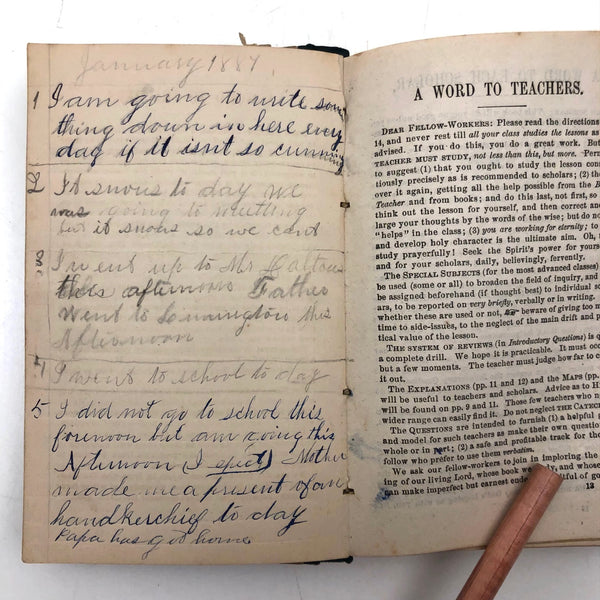 January 1887
1 I am going to write some
thing down in here every
day if it isnt so cunning
2 It snows to day we
was going to meetting
but it snows so we cant
3 I went up to Mr
this afternoon Father
went to this
Afternoon
4 I went to school to day
5 I did not go to school this
forenoon but am going this
Afternoon (I spect) Mother
made me a present of an
handkerchief to day
Papa has got home
A WORD TO TEACHERS.
DEAR FELLOW-WORKERS: Please read the directions
14, and never rest till all your class studies the lessons as
advised. If you do this, you do a great work. But
TEACHER MUST STUDY, not less than this, but more.
to suggest (1) that you ought to study the lesson
tiously precisely as is recommended to scholars; (2)
over it again, getting all the help possible from the
Teacher and from books; and do this last, not first, so
think out the lesson for yourself, and then correct and
large your thoughts by the words of the wise; but do not
"helps" in the class; (3) you are working for eternity; to
and develop holy character is the ultimate aim. Oh,
study prayerfully! Seek the Spirit's power for yourself
and for your scholars, daily, believingly, fervently.
The SPECIAL SUBJECTS (for the most advanced classes)
be used (some or all) to broaden the field of inquiry, and
be assigned beforehand (if thought best) to individual
ars, to be reported on very briefly, verbally or in writing.
whether these are used or not, beware of giving too
time to side-issues, to the neglect of the main drift and
tical value of the lesson.
THE SYSTEM OF REVIEWS (in Introductory Questions) is
a complete drill. We hope it is practicable. It must
but a few moments. The teacher must judge how far to
it out.
The EXPLANATIONS (pp. 11 and 12) and the MAPS (pp.
will be useful to teachers and scholars. Advice as to
will be found on pp. 9 and 11. Those few teachers who
wider range can easily find it. Do not neglect THE
The QUESTIONS are intended to furnish (1) a helpful
and model for such teachers as make their own question
whole or in part; (2) a safe and profitable track for
follow who prefer to use them verbatim.
We ask our fellow-workers to join in imploring the
ing of our living Lord, whose book we and whose
can make imperfect but earnest of
13